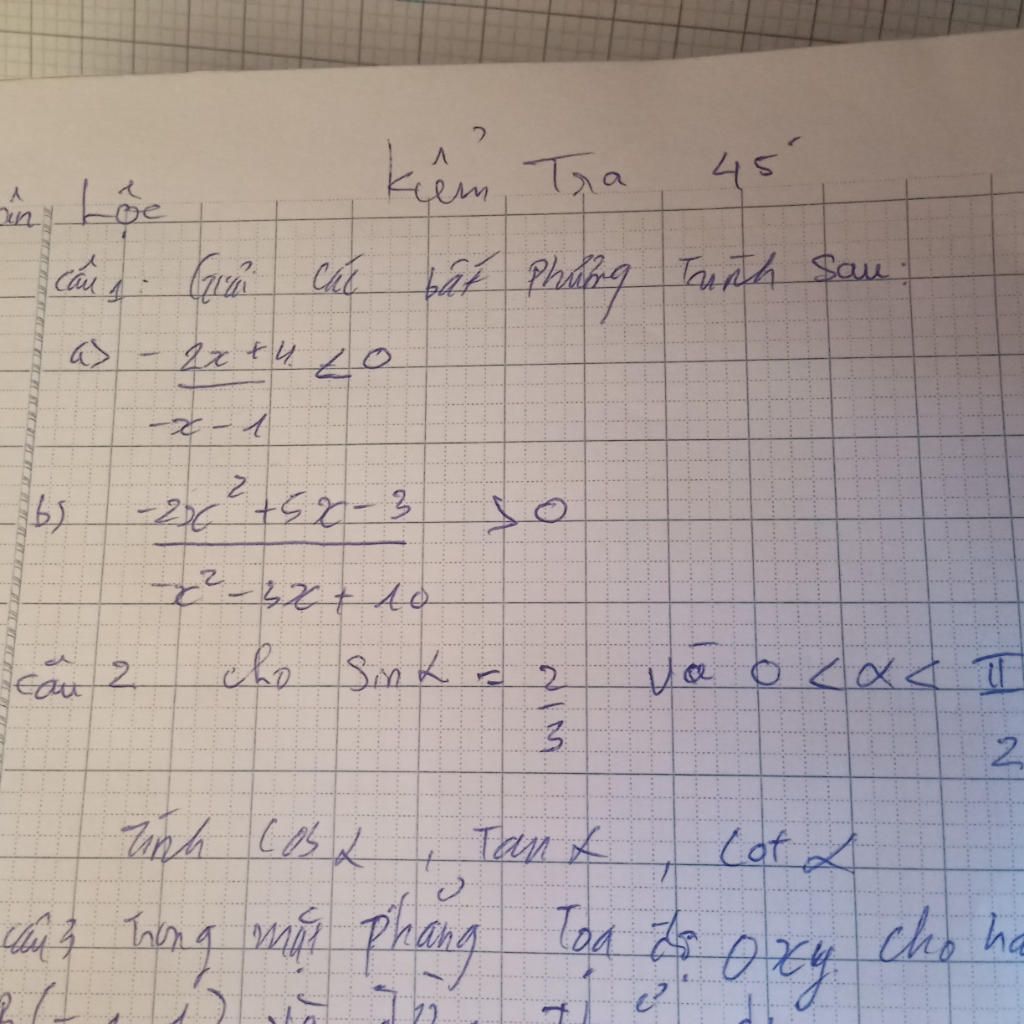 Kiểm Tra 45'
Lộc
câu 1: Giải các bất phương trình sau:
a) - 2x + 4 < 0
-x - 1
b) -2x² + 5x - 3 > 0
-x² - 3x + 10
câu 2 cho sin α = 2/3 và 0 < α < π/2
Tính cos α , Tan α , cot α
câu 3 Trong mặt phẳng Tọa độ Oxy cho
(-1, 1) và